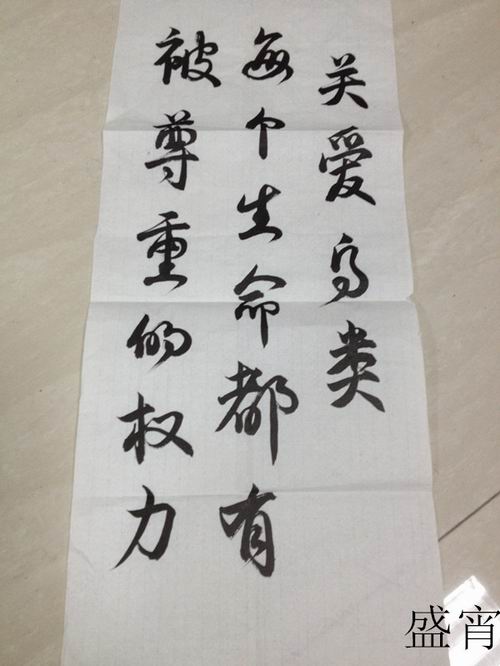 关爱鸟类
每个生命都有
被尊重的权力
盛宵